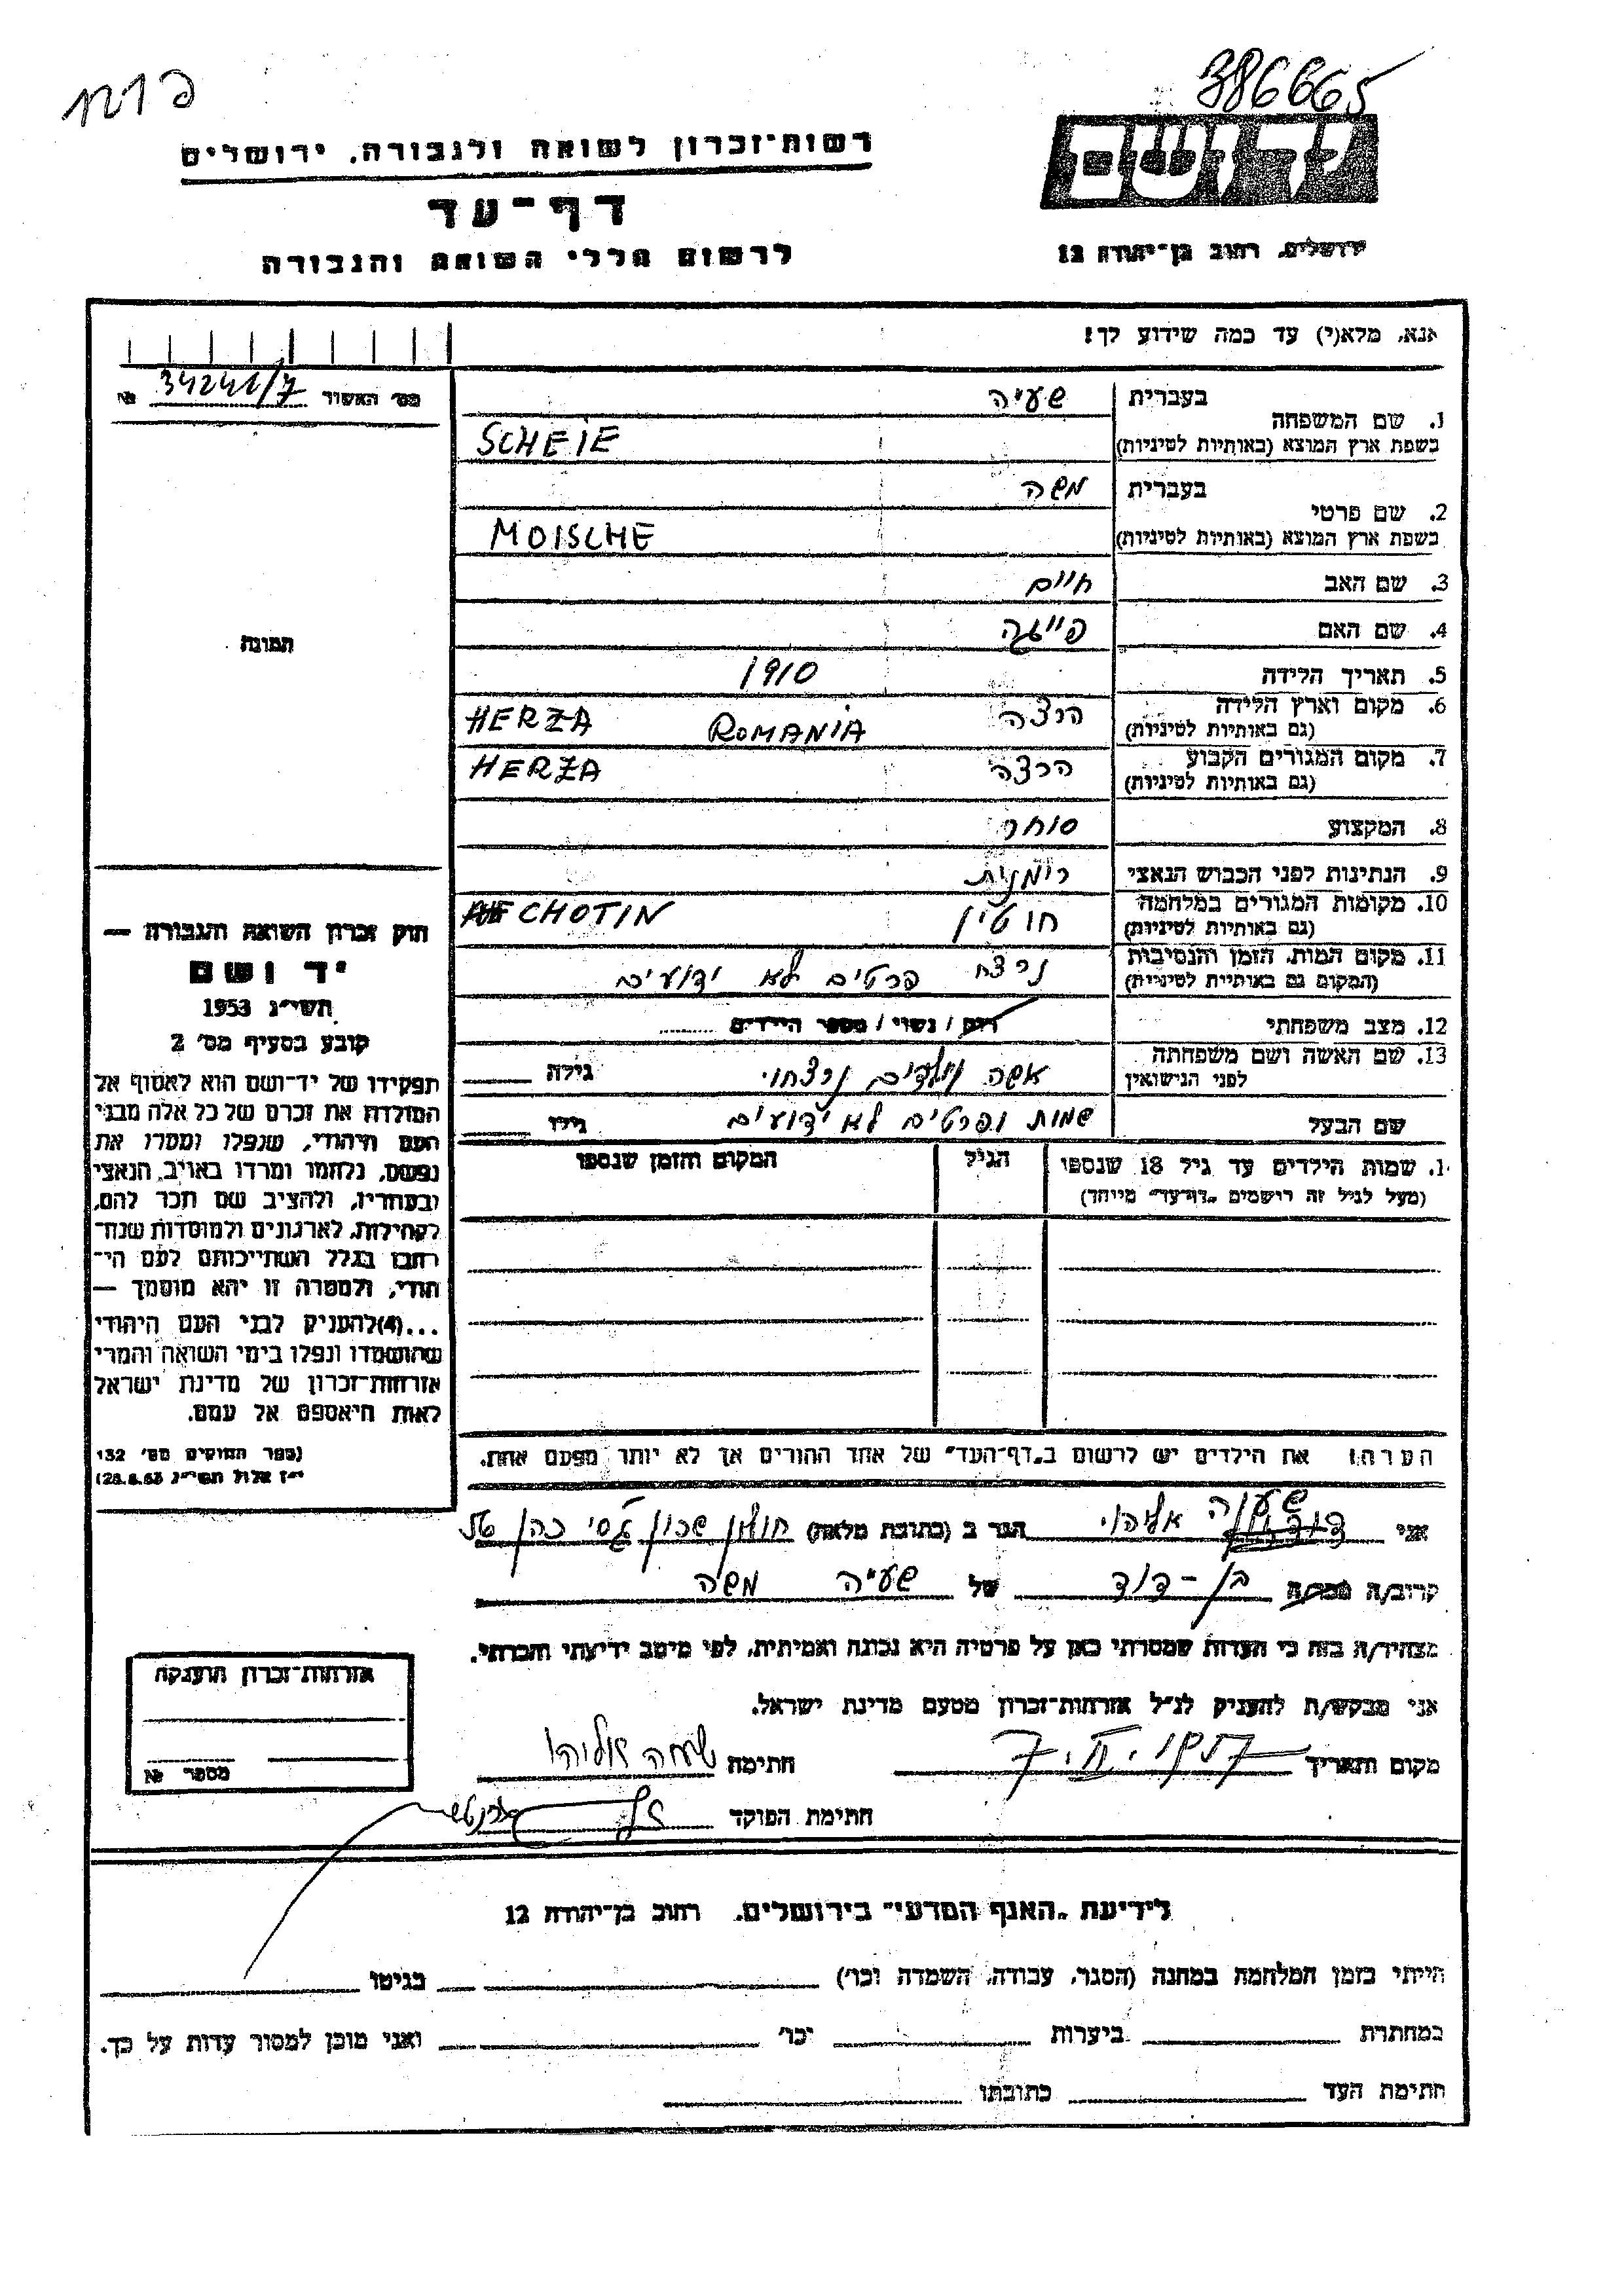 386665
יד ושם
רשות־זכרון לשואה ולגבורה, ירושלים
דף־עד
לרשום חללי השואה והגבורה
ירושלים, רחוב בן־יהודה 12
אנא, מלא(י) עד כמה שידוע לך!
מס׳ האשור 34241/7 №
1. שם המשפחה
בעברית שעיה
בשפת ארץ המוצא (באותיות לטיניות) SCHEIE
2. שם פרטי
בעברית משה
בשפת ארץ המוצא (באותיות לטיניות) MOISCHE
3. שם האב חיים
4. שם האם פייגה
5. תאריך הלידה 1910
6. מקום וארץ הלידה הרצה ROMANIA HERZA
(גם באותיות לטיניות)
7. מקום המגורים הקבוע הרצה HERZA
(גם באותיות לטיניות)
8. המקצוע סוחר
9. הנתינות לפני הכבוש הנאצי רומנית
10. מקומות המגורים במלחמה חוטין CHOTIN
(גם באותיות לטיניות)
11. מקום המות, הזמן והנסיבות נרצח פרטים לא ידועים
(המקום גם באותיות לטיניות)
12. מצב משפחתי רוק / נשוי / מספר הילדים
13. שם האשה ושם משפחתה אשה וילדים נרצחו גילה
לפני הנישואין
שם הבעל שמות ופרטים לא ידועים גילו
1. שמות הילדים עד גיל 18 שנספו הגיל המקום והזמן שנספו
(מעל לגיל זה רושמים „דף־עד" מיוחד)
הערה: את הילדים יש לרשום ב„דף־העד" של אחד ההורים אך לא יותר מפעם אחת.
תמונה
חוק זכרון השואה והגבורה —
יד ושם
תשי״ג 1953
קובע בסעיף מס׳ 2
תפקידו של יד־ושם הוא לאסוף אל
המולדת את זכרם של כל אלה מבני
העם היהודי, שנפלו ומסרו את
נפשם, נלחמו ומרדו באויב הנאצי
ובעוזריו, ולהציב שם וזכר להם,
לקהילות, לארגונים ולמוסדות שנח־
רבו בגלל השתייכותם לעם הי־
הודי, ולמטרה זו יהא מוסמך —
...(4) להעניק לבני העם היהודי
שהושמדו ונפלו בימי השואה והמרי
אזרחות־זכרון של מדינת ישראל
לאות היאספם אל עמם.
(ספר החוקים מס׳ 132
י״ז אלול תשי״ג 28.8.53)
אני שעיה אליהו הגר ב (כתובת מלאה) חולון שכון ג׳סי כהן
קרוב/ה מכר/ה בן-דוד של שעיה משה
מצהיר/ה בזה כי העדות שמסרתי כאן על פרטיה היא נכונה ואמיתית, לפי מיטב ידיעתי והכרתי.
אני מבקש/ת להעניק לנ״ל אזרחות־זכרון מטעם מדינת ישראל.
מקום ותאריך 7.II.1957 חתימה שעיה אליהו
חתימת הפוקד
אזרחות־זכרון הוענקה
מספר №
לידיעת „האגף המדעי" בירושלים, רחוב בן־יהודה 12
הייתי בזמן המלחמה במחנה (הסגר, עבודה, השמדה וכו׳) בגיטו
במחתרת ביערות וכו׳ ואני מוכן למסור עדות על כך.
חתימת העד כתובתו